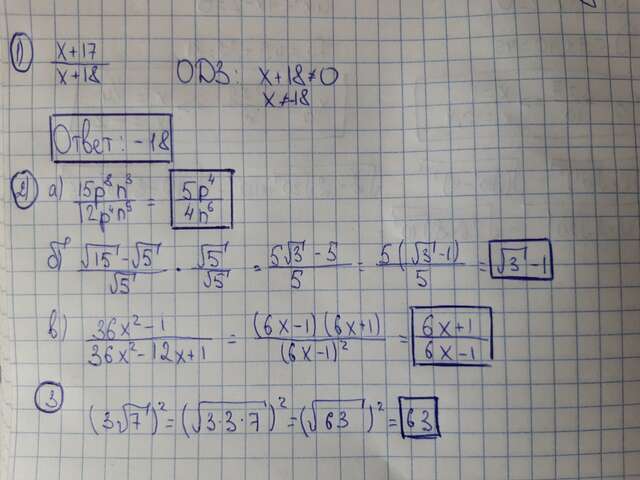 1) (x+17)/(x+18) ОДЗ: x+18≠0
x≠-18
Ответ: -18
2) а) 15p⁸n³/12p⁴n⁹ = 5p⁴/4n⁶
б) (√15-√5)/√5 · √5/√5 = (5√3-5)/5 = 5(√3-1)/5 = √3-1
в) (36x²-1)/(36x²-12x+1) = (6x-1)(6x+1)/(6x-1)² = (6x+1)/(6x-1)
3
(3√7)² = (√3·3·7)² = (√63)² = 63